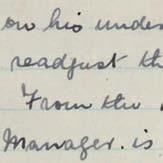 on his under
readjust th
From the
Manager. is